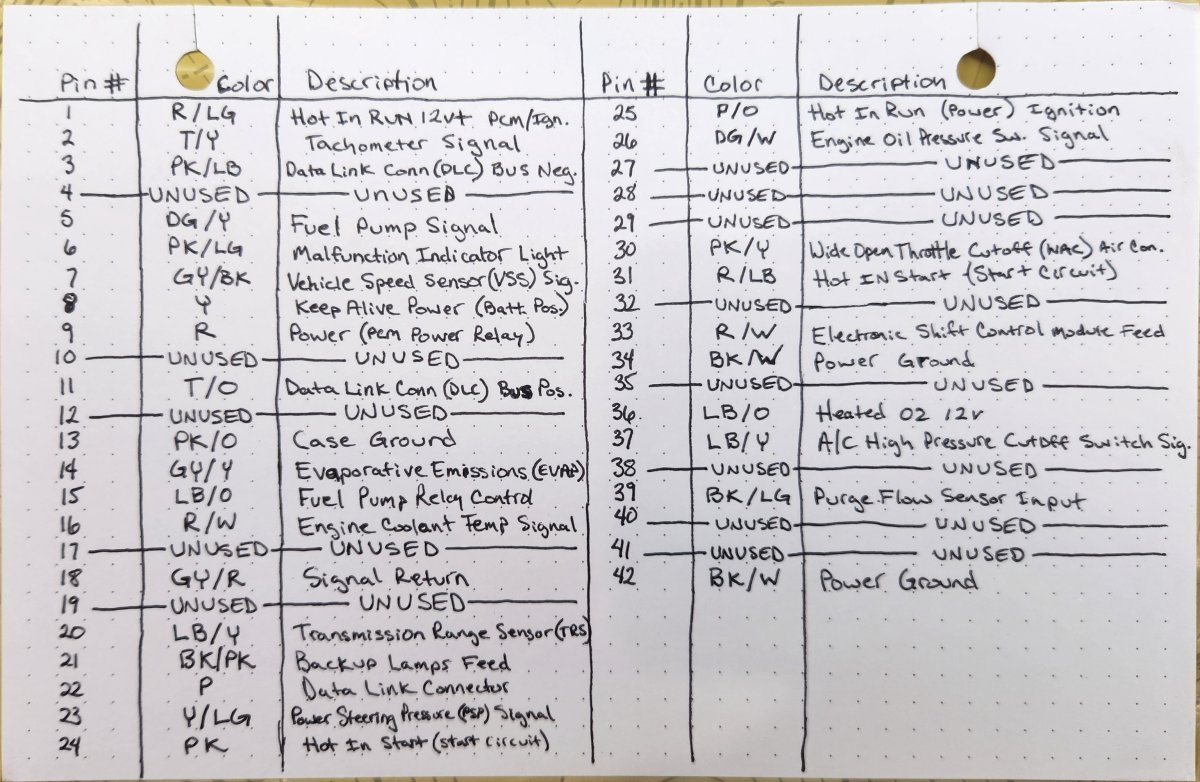 Pin # Color Description
1 R/LG Hot In RUN 12v+ Pcm/Ign.
2 T/Y Tachometer Signal
3 PK/LB Data Link Conn (DLC) Bus Neg.
4 UNUSED UNUSED
5 DG/Y Fuel Pump Signal
6 PK/LG Malfunction Indicator Light
7 GY/BK Vehicle Speed Sensor (VSS) Sig.
8 Y Keep Alive Power (Batt. Pos.)
9 R Power (Pcm Power Relay)
10 UNUSED UNUSED
11 T/O Data Link Conn (DLC) Bus Pos.
12 UNUSED UNUSED
13 PK/O Case Ground
14 GY/Y Evaporative Emissions (EVAP)
15 LB/O Fuel Pump Relay Control
16 R/W Engine Coolant Temp Signal
17 UNUSED UNUSED
18 GY/R Signal Return
19 UNUSED UNUSED
20 LB/Y Transmission Range Sensor (TRS)
21 BK/PK Backup Lamps Feed
22 P Data Link Connector
23 Y/LG Power Steering Pressure (PSP) Signal
24 PK Hot In Start (start circuit)
Pin # Color Description
25 P/O Hot In Run (Power) Ignition
26 DG/W Engine Oil Pressure Sw. Signal
27 UNUSED UNUSED
28 UNUSED UNUSED
29 UNUSED UNUSED
30 PK/Y Wide Open Throttle Cutoff (WAC) Air Con.
31 R/LB Hot IN Start (Start Circuit)
32 UNUSED UNUSED
33 R/W Electronic Shift Control Module Feed
34 BK/W Power Ground
35 UNUSED UNUSED
36 LB/O Heated O2 12v
37 LB/Y A/C High Pressure Cutoff Switch Sig.
38 UNUSED UNUSED
39 BK/LG Purge Flow Sensor Input
40 UNUSED UNUSED
41 UNUSED UNUSED
42 BK/W Power Ground